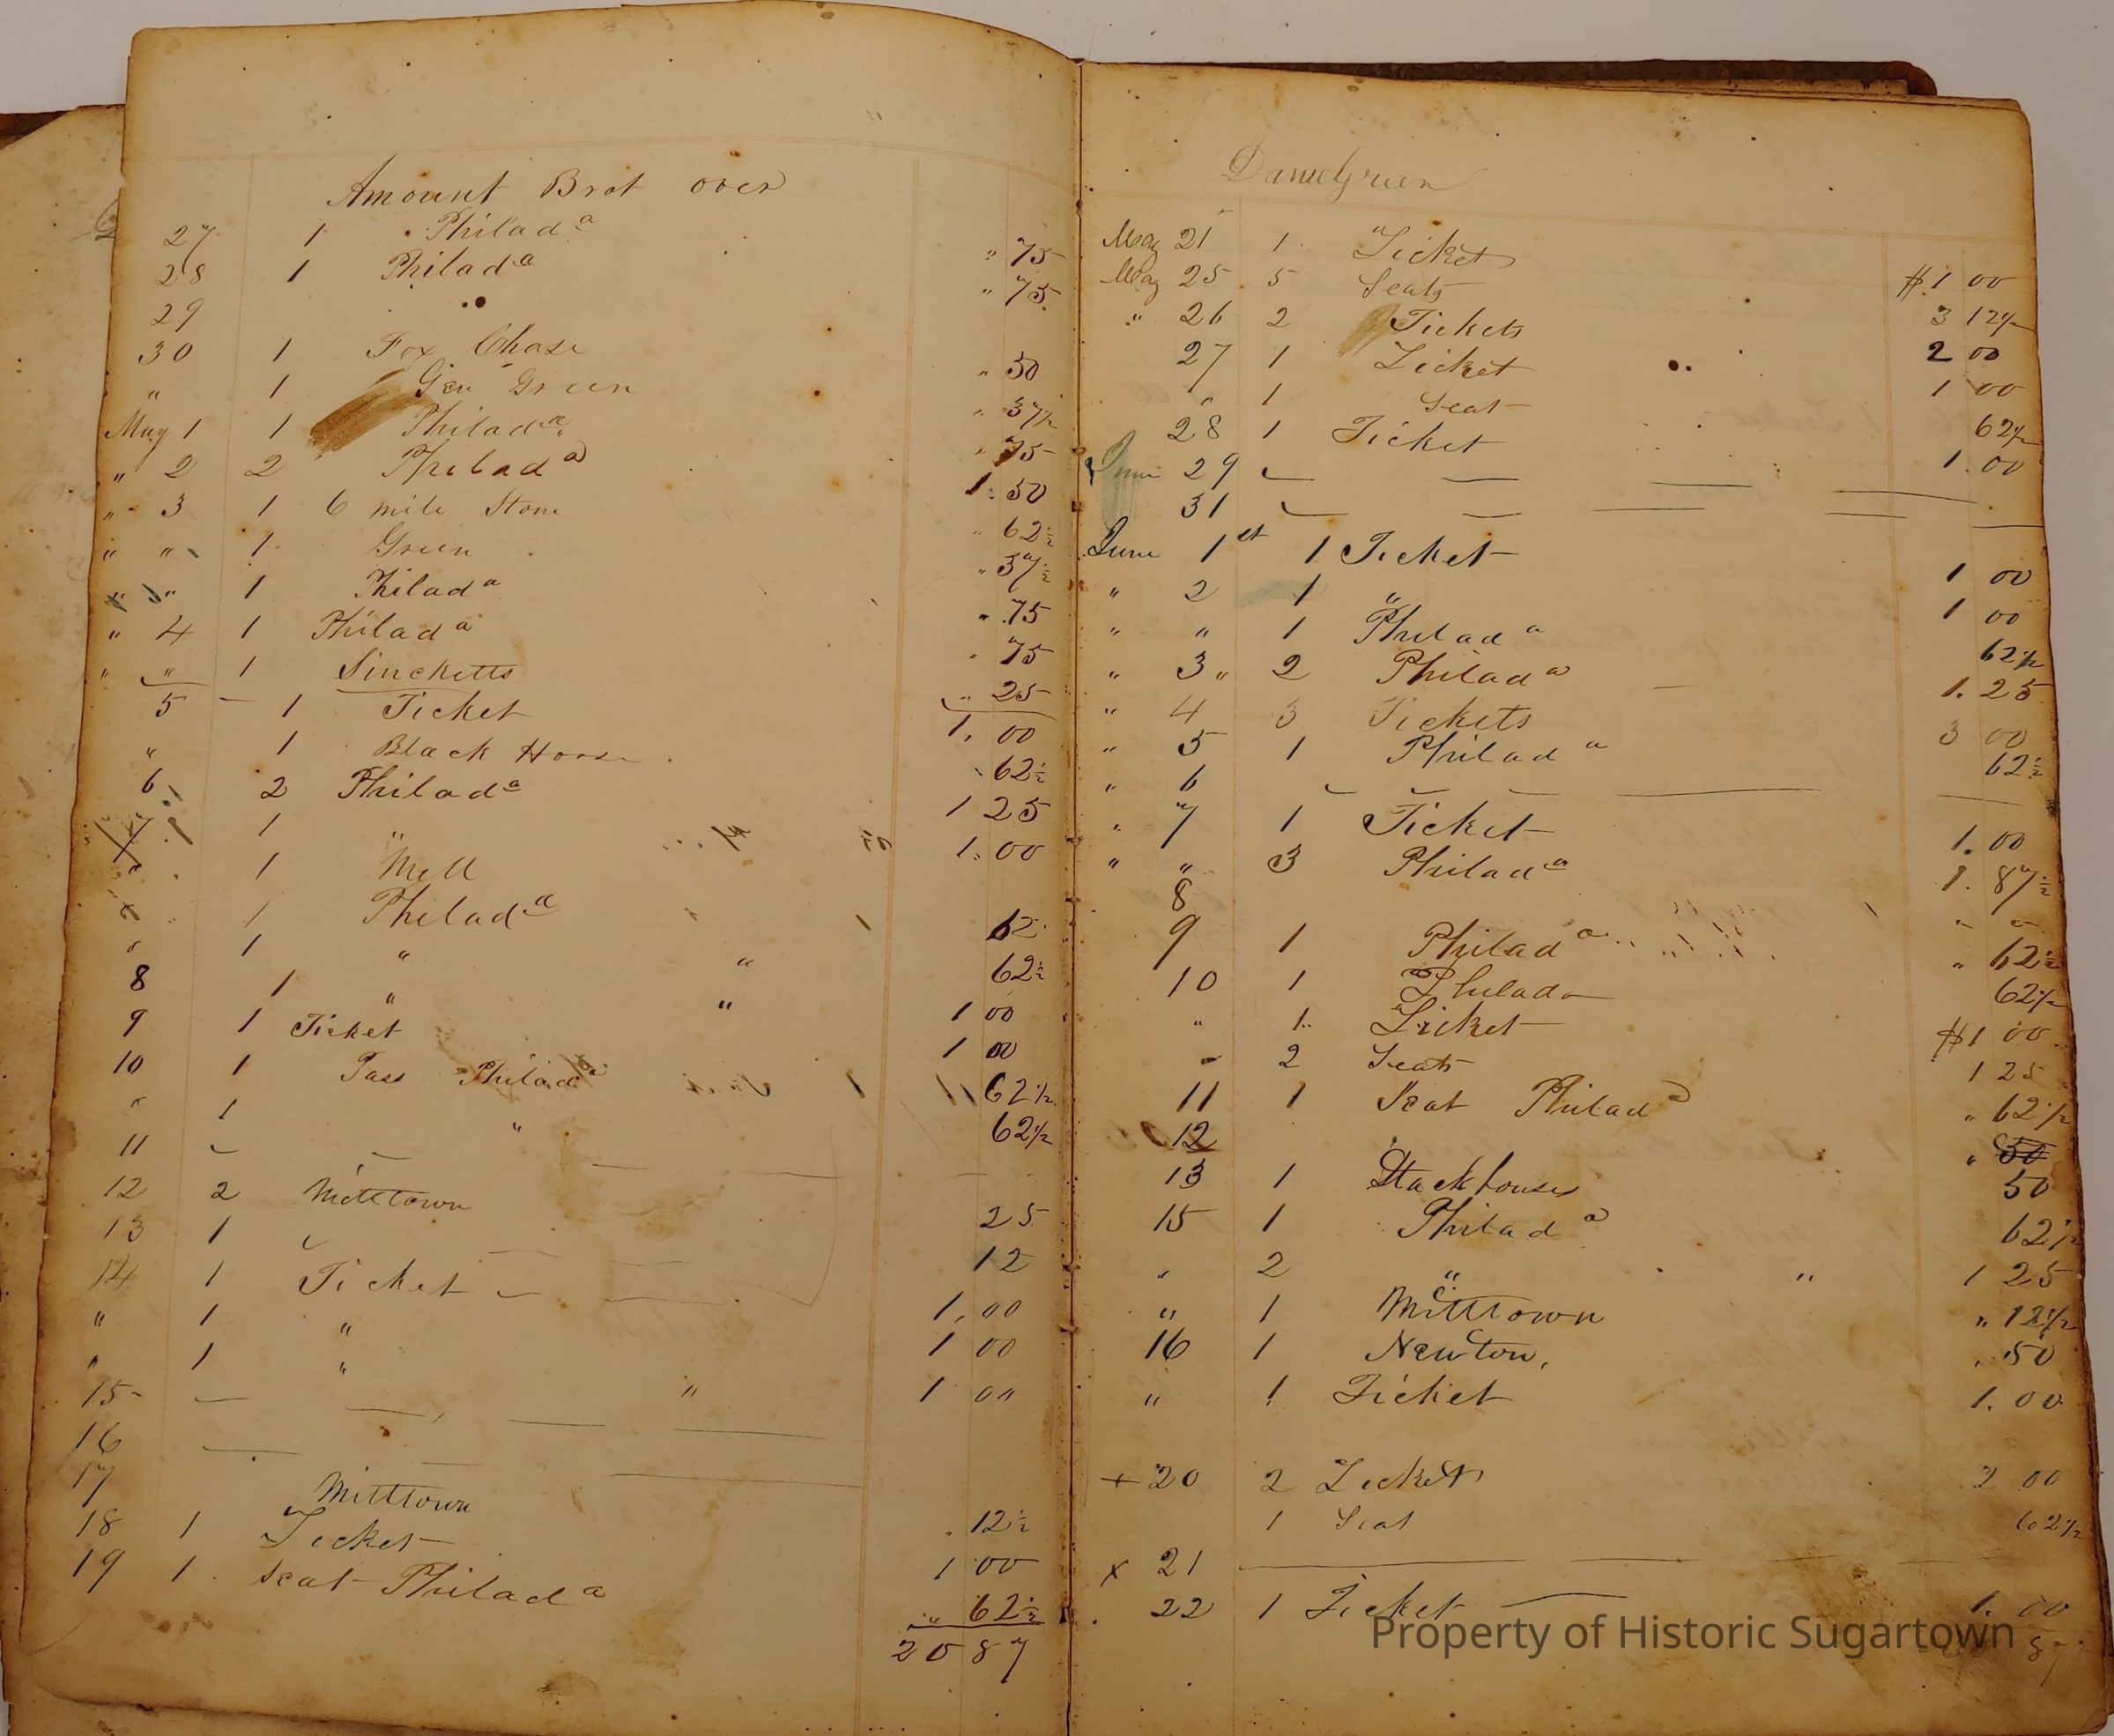 Amount Brot over
27 1 Philad a " 75
28 1 Philad a " 75
29
30 1 Fox Chase " 50
" 1 Gen Green " 37 1/2
May 1 1 Philad a " 75
" 2 2 Philad a 1. 50
" 3 1 6 mile Stone " 62 1/2
" " 1 Green " 37 1/2
" " 1 Philad a " 75
" 4 1 Philad a " 75
" " 1 Sincketts " 25
5 1 Ticket 1. 00
" 1 Black Horse 62 1/2
6 2 Philad a 1 25
7 1 " 1. 00
" 1 Mill
1 Philad a 62
" 1 " " 62 1/2
8 1 " " 1 00
9 1 Ticket 1 00
10 1 Pass Philad a 62 1/2
" 1 " 62 1/2
11
12 2 Milltown 25
13 1 12
14 1 Ticket 1. 00
" 1 " 1 00
" 1 " " 1 00
15
16
17 Milltown
18 1 Ticket . 12 1/2
19 1 Seat Philad a 1 00
" 62 1/2
20 87
Daniel Green
May 21 1 Ticket $1 00
May 25 5 Seats 3 12 1/2
" 26 2 Tickets 2 00
27 1 Ticket 1 00
" 1 Seat 62 1/2
28 1 Ticket 1. 00
June 29
31
June 1st 1 Ticket 1 00
" 2 1 " 1 00
" " 1 Philad a 62 1/2
" 3 " 2 Philad a 1. 25
" 4 3 Tickets 3 00
" 5 1 Philad a 62 1/2
" 6
" 7 1 Ticket 1. 00
" " 3 Philad a 1. 87 1/2
8
9 1 Philad a " 62 1/2
10 1 Philada 62 1/2
" 1 Ticket $1 00
" 2 Seats 1 25
11 1 Seat Philad a " 62 1/2
12 " 50
13 1 Stackhouses 50
15 1 Philad a 62 1/2
" 2 " " 1 25
" 1 Milltown " 12 1/2
16 1 Newton, . 50
" 1 Ticket 1. 00
+ 20 2 Tickets 2 00
1 Seat 62 1/2
x 21
22 1 Ticket 1. 00
87
Property of Historic Sugartown